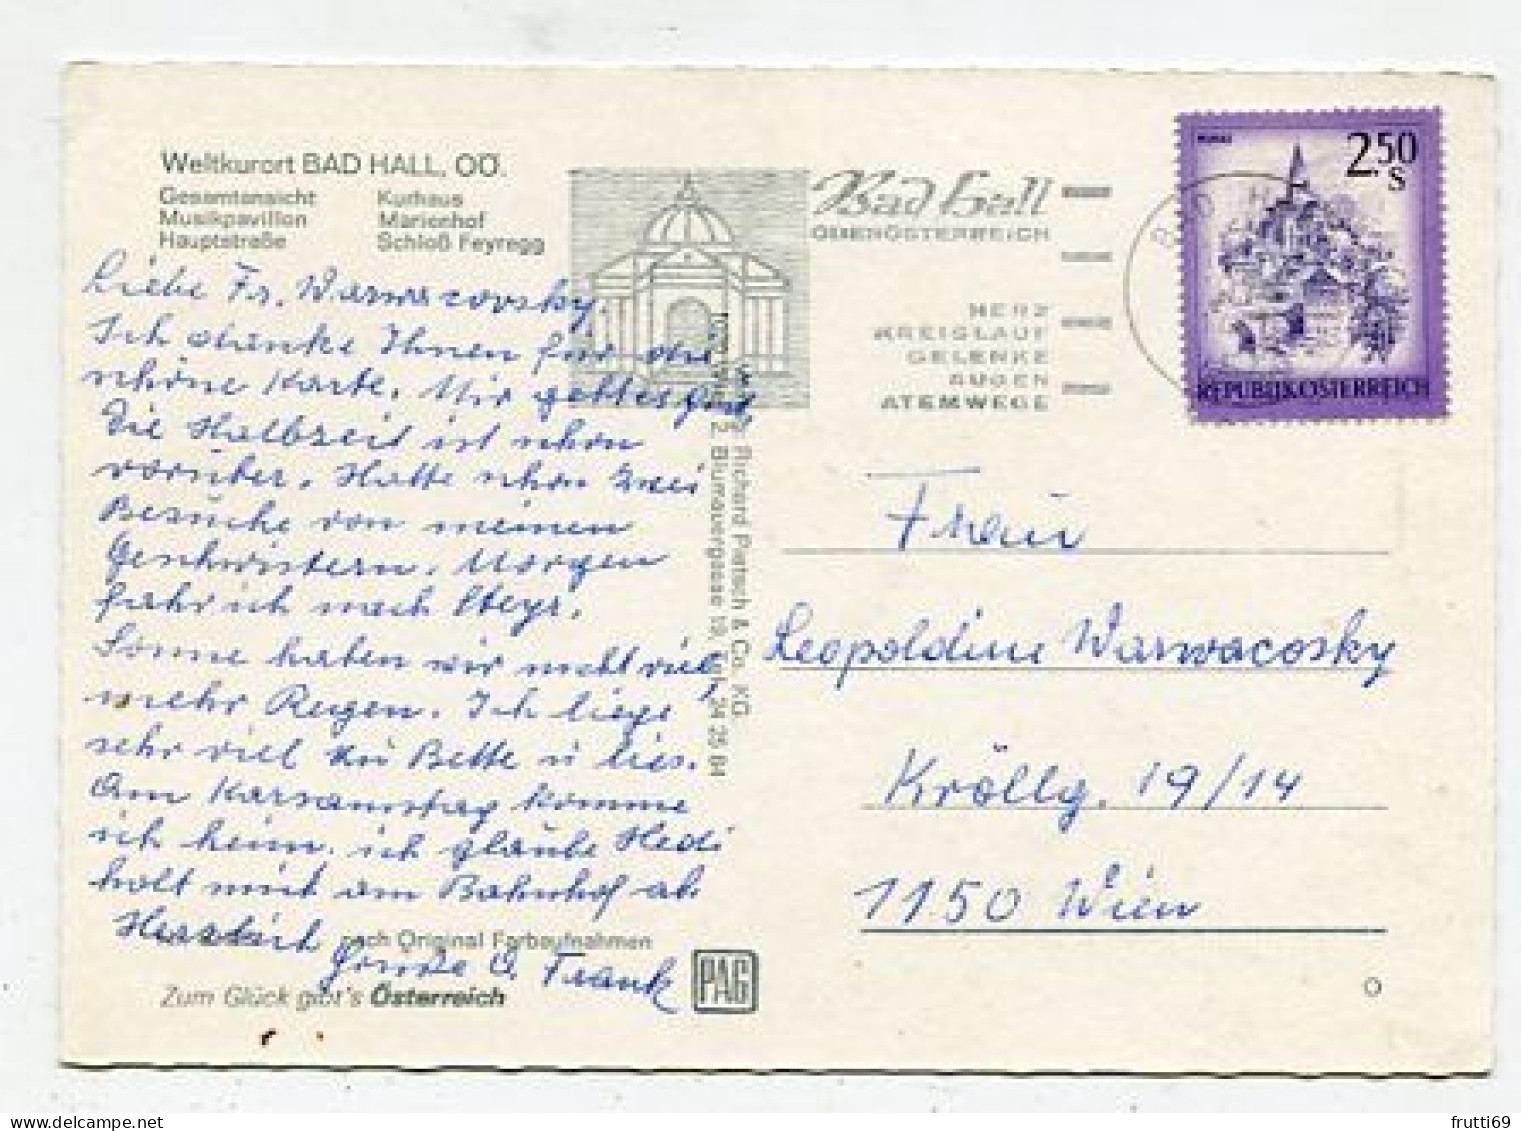 Weltkurort BAD HALL, OÖ.
Gesamtansicht Kurhaus
Musikpavillon Marienhof
Hauptstraße Schloß Feyregg
Liebe Fr. Warwacovsky.
Ich danke Ihnen für die
schöne Karte. Mir geht es gut,
Die Halbzeit ist schon
vorüber. Hatte schon zwei
Besuche von meinen
Geschwistern. Morgen
fahr ich nach Steyr.
Sonne haben wir nicht viel,
mehr Regen. Ich liege
sehr viel im Bette u lies.
Am Karsamstag komme
ich heim. ich glaube Hedi
holt mich am Bahnhof ab
Herzlich
Grüße O. Frank
nach Original Farbaufnahmen
Zum Glück gibt's Österreich
PAG
Richard Pietsch & Co. KG.
2, Blumauergasse 19, Tel. 24 25 84
Bad Hall
OBERÖSTERREICH
HERZ
KREISLAUF
GELENKE
AUGEN
ATEMWEGE
2.50
S
REPUBLIK ÖSTERREICH
Frau
Leopoldine Warwacosky
Kröllg. 19/14
1150 Wien
frutti69